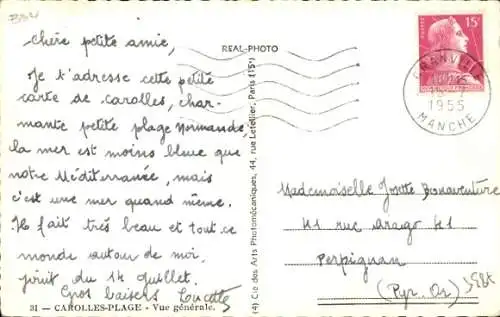 chère petite amie,
Je t'adresse cette petite
carte de carolles, char-
mante petite plage normande,
la mer est moins bleue que
notre Méditerranée, mais
c'est une mer quand même.
Il fait très beau et tout ce
monde autour de moi
jouit du 14 Juillet.
Gros baisers Lucette
31 - CAROLLES-PLAGE - Vue générale.
REAL-PHOTO
(4) Cie des Arts Photomécaniques, 44, rue Letellier, Paris (15e)
POSTES
15F
GRANVILLE
1955
MANCHE
Mademoiselle Josette Bonaventure
41 rue Arago 41
Perpignan
(Pyr. Or.)